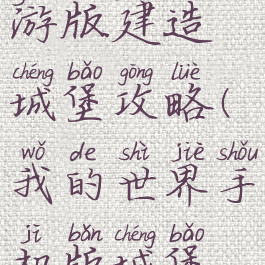 游版建造
chéng bǎo gōng lüè
城堡攻略(
wǒ de shì jiè shǒu
我的世界手
jī bǎn chéng bǎo
机版城堡